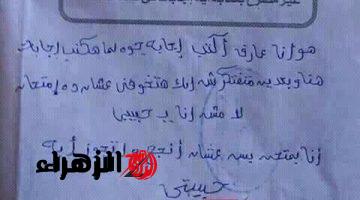 هو انا عارف أكتب إجابه جوه لما هكتب إجابه
هنا وبعدين متفتكرش إنك هتخوفنى عشان ده إمتحان
لا مش أنا يا حبيبى
أنا بمتحن بس عشان أنجح وأتجوز أية
حبيبتى
الزهراء